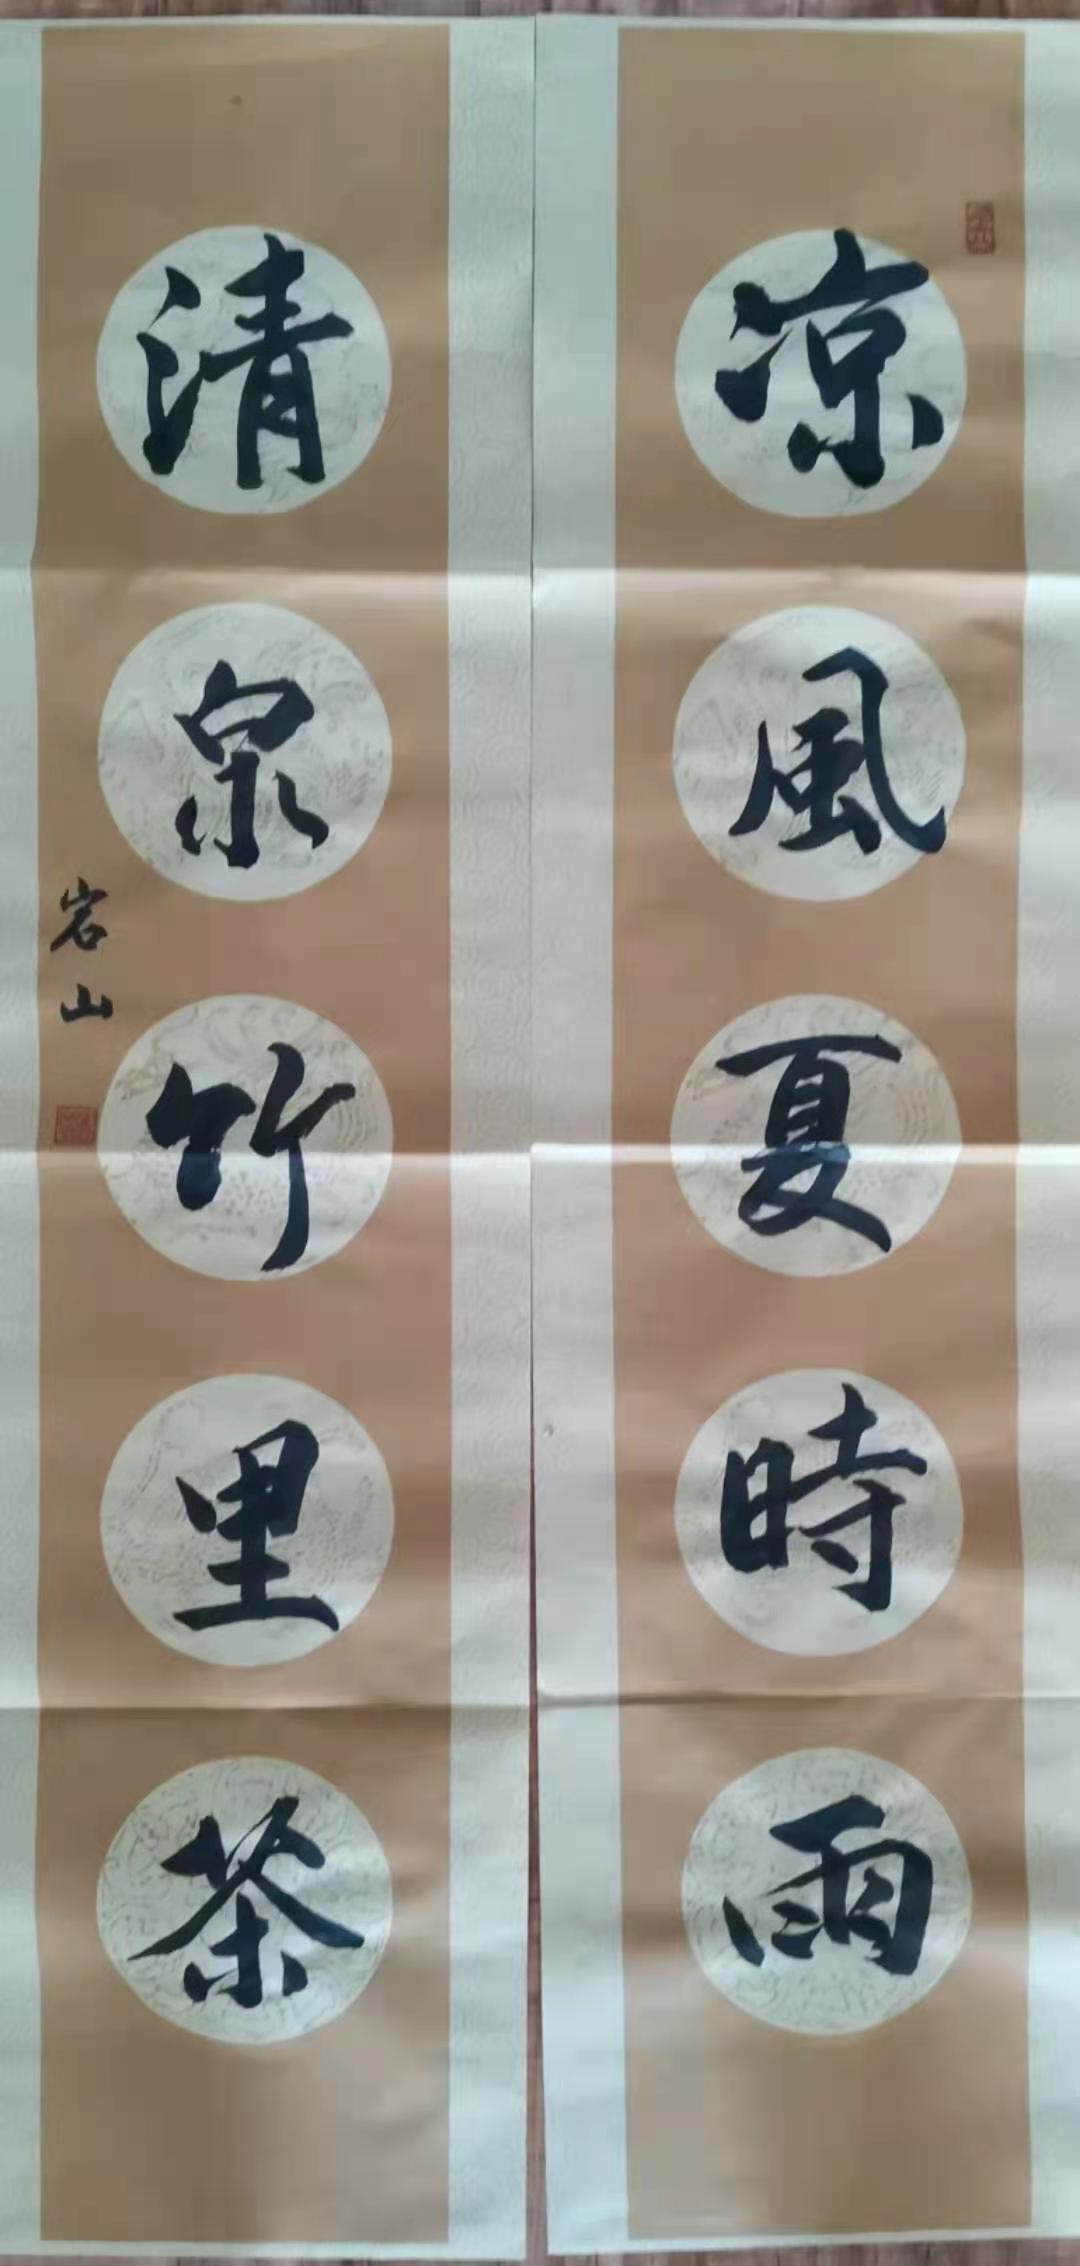 凉風夏時雨
清泉竹里茶
岩山